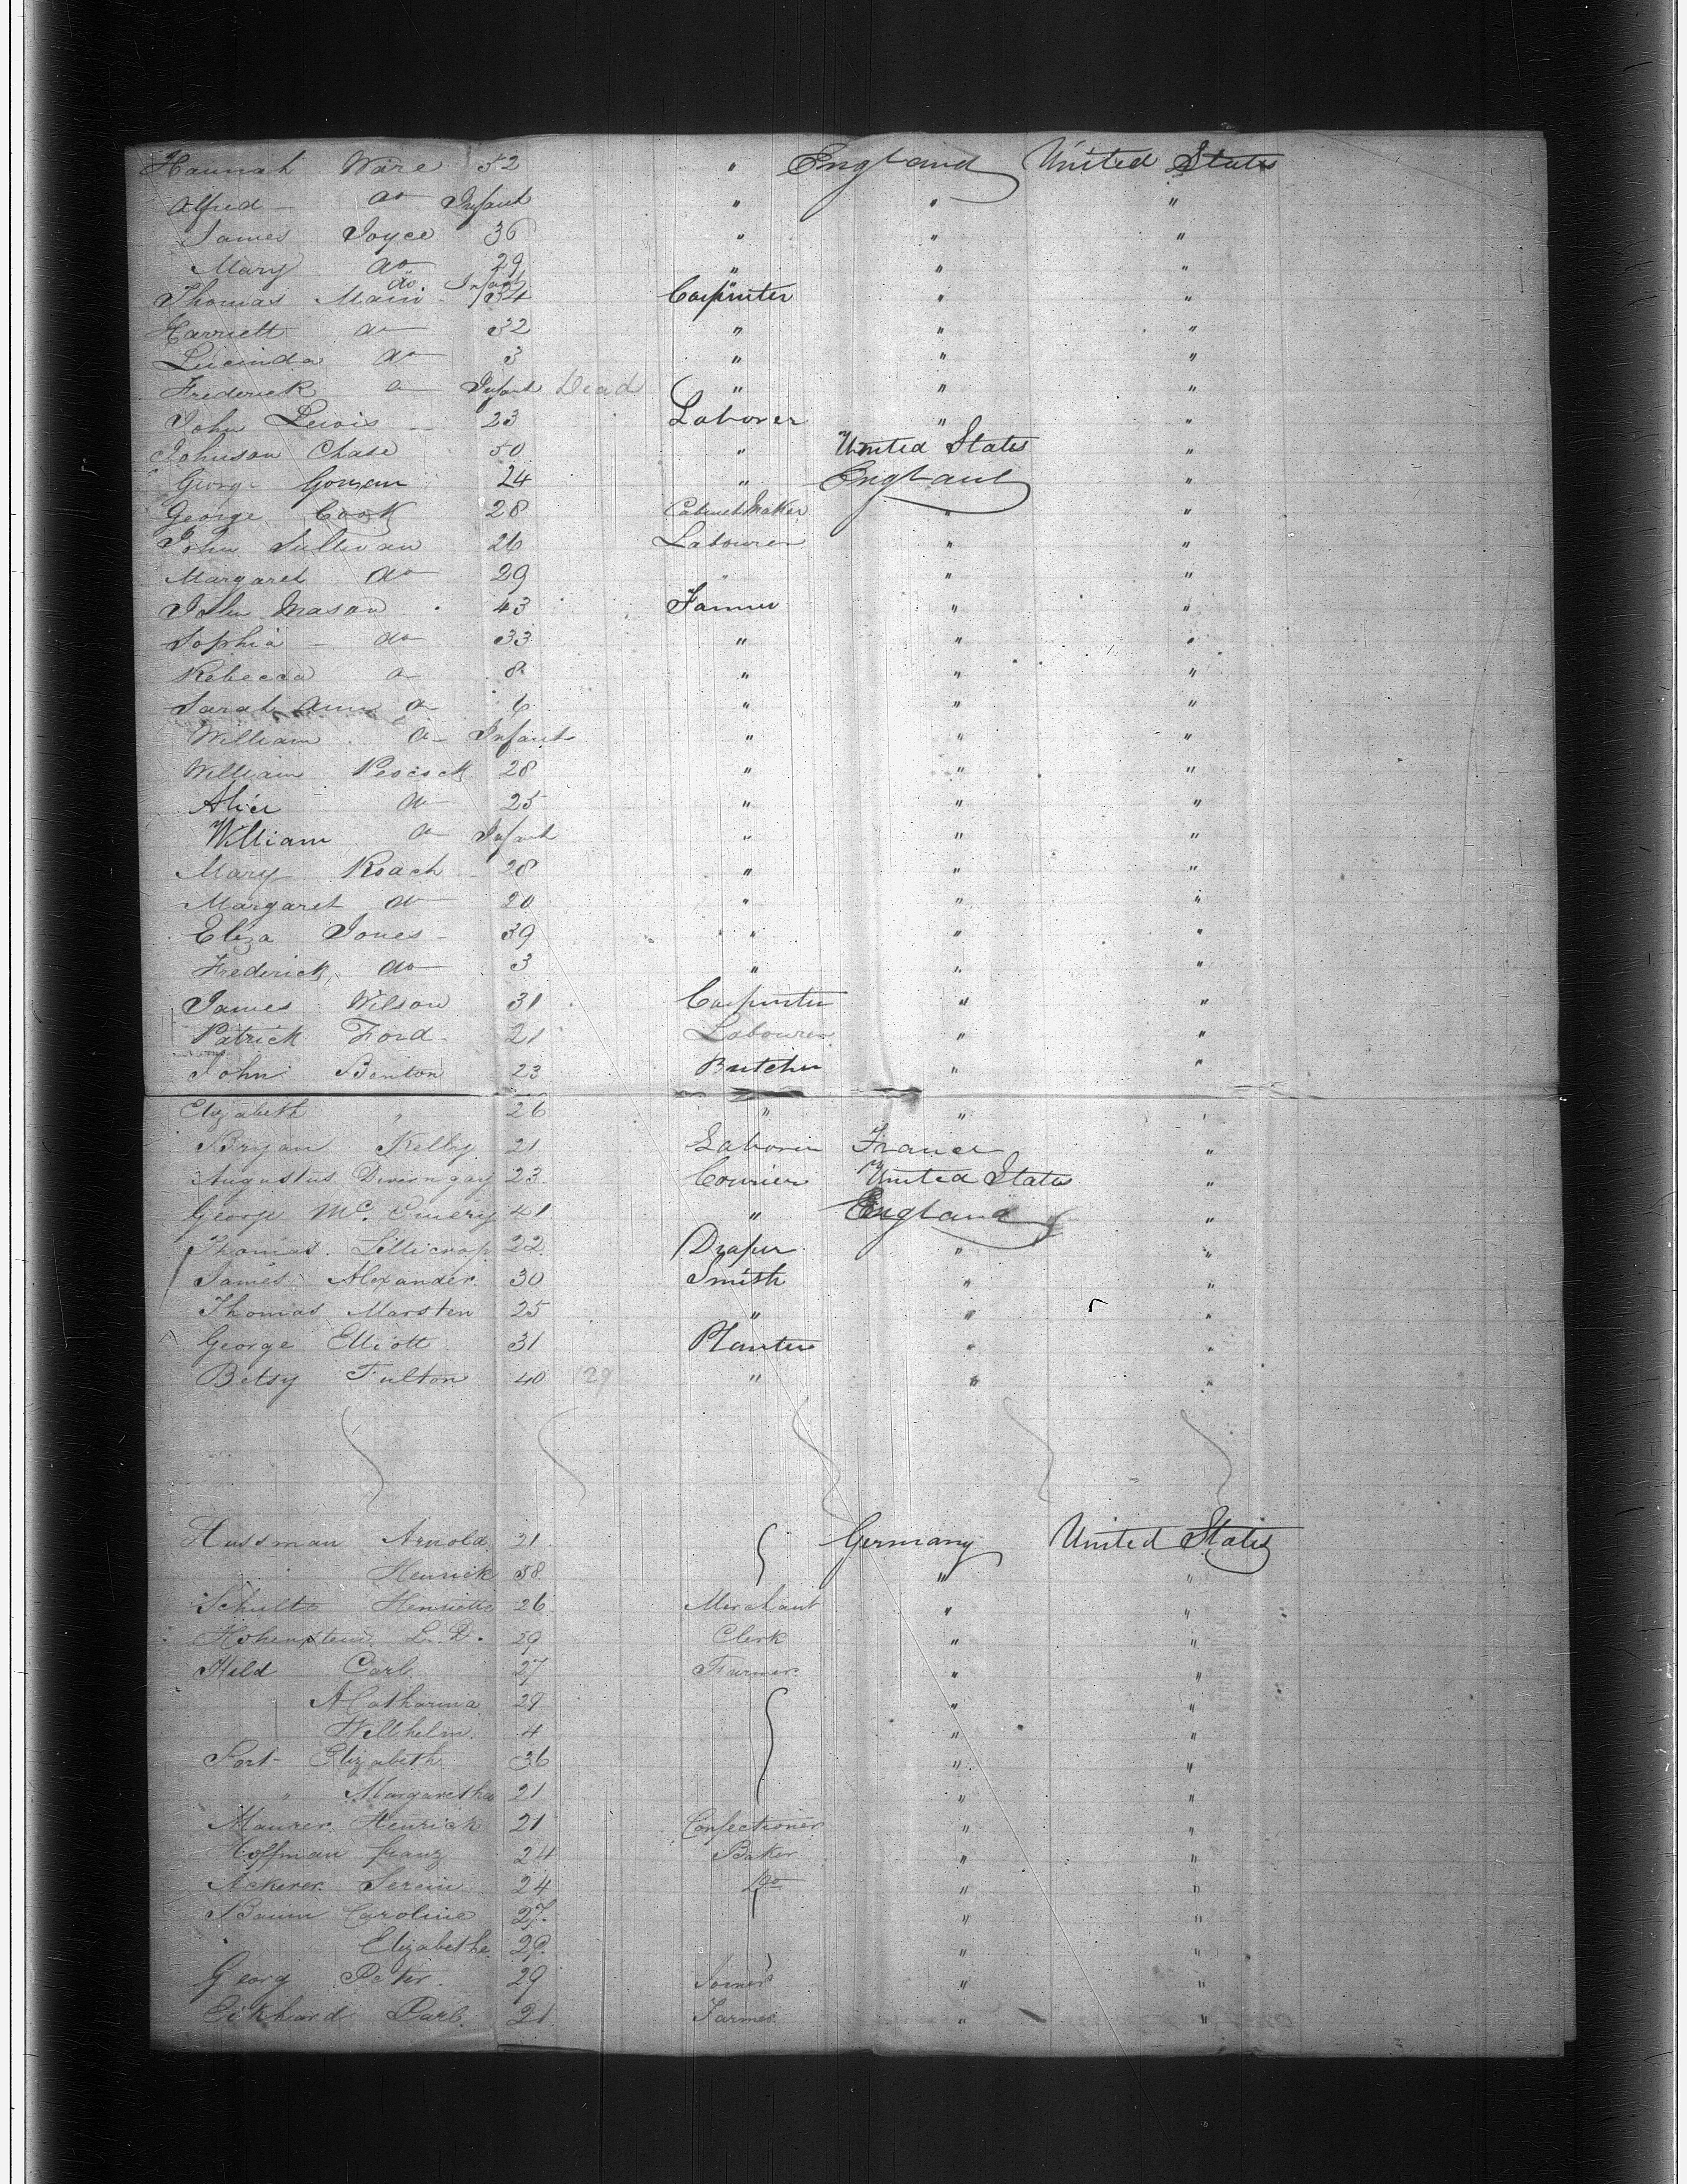 Hannah Ware 32 " England United States
Alfred do Infant " " "
James Joyce 36 " " "
Mary do 29 " " "
do Infant "
Thomas Main 34 Carpenter " "
Harriett do 32 " " "
Lucinda do 3 " " "
Frederick do Infant Dead " " "
John Lewis 23 Laborer " "
Johnson Chase 50 " United States "
George 24 " England "
George Cook 28 Cabinet Maker " "
John Sullivan 26 Labourer " "
Margaret do 29 " "
John Mason 43 Farmer " "
Sophia do 33 " " "
Rebecca do 8 " " "
Sarah Ann do 6 " " "
William do Infant " " "
William Pocock 28 " " "
Alice do 25 " " "
William do Infant " " "
Mary Roach 28 " " "
Margaret do 20 " " "
Eliza Jones 39 " " "
Frederick do 3 " " "
James Wilson 31 Carpenter " "
Patrick Ford 21 Labourer " "
John Benton 23 Butcher " "
Elizabeth " 26 " " "
Bryan Kelly 21 Laborer France "
Augustus 23 Courier United States "
George Mc. Emery 41 " England "
Thomas Lillicrap 22 Draper " "
James Alexander 30 Smith " "
Thomas Marsten 25 " " "
George Elliott 31 Planter " "
Betsy Fulton 40 29 " " "
Hussman Arnold 31 Germany United States
Henrick 58 " "
Schults Henriette 26 Merchant " "
Hohenstein L. D. 29 Clerk " "
Hild Carl 27 Farmer " "
A Catharina 29 " "
Willhelm 4 " "
Port Elizabeth 36 " "
" Margaretha 21 " "
Maurer Henrick 21 Confectioner " "
Hoffman franz 24 Baker " "
Ackerer 24 do " "
Baum Caroline 27 " "
Elizabethe 29 " "
Georg Peter 29 Joiner " "
Eckhard Carl 21 Farmer " "